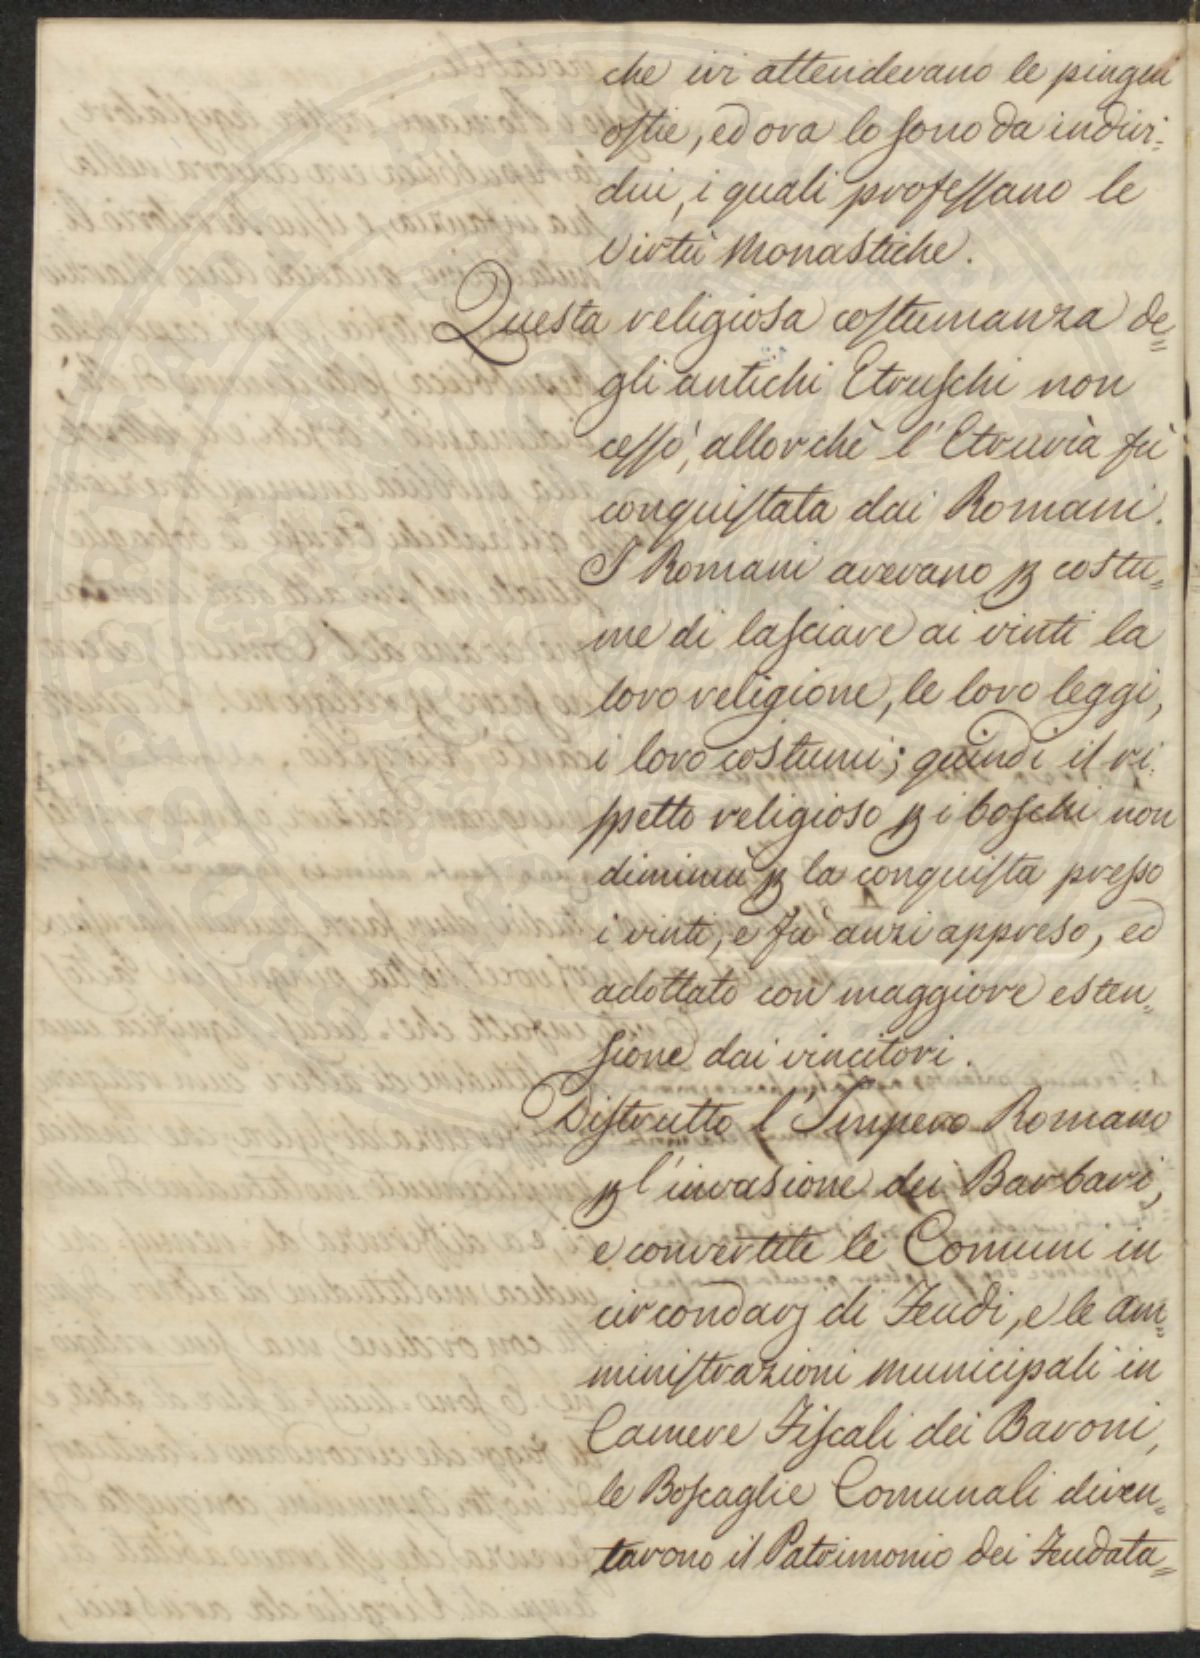 che ivi attendevano le pingui
ostie, ed ora lo sono da indivi-
dui, i quali professano le
virtù Monastiche.
Questa religiosa costumanza de=
gli antichi Etruschi non
cessò, allorchè l'Etruria fù
conquistata dai Romani.
I Romani avevano ꝑ costu=
me di lasciare ai vinti la
loro religione, le loro leggi,
i loro costumi; quindi il ri-
spetto religioso ꝑ i boschi non
diminuì ꝑ la conquista presso
i vinti, e fù anzi appreso, ed
adottato con maggiore esten=
sione dai vincitori.
Distrutto l'Impero Romano
ꝑ l'invasione dei Barbari,
e convertite le Comuni in
circondarj di Feudi, e le am=
ministrazioni municipali in
Camere Fiscali dei Baroni,
le Boscaglie Comunali diven=
tarono il Patrimonio dei Feudata=